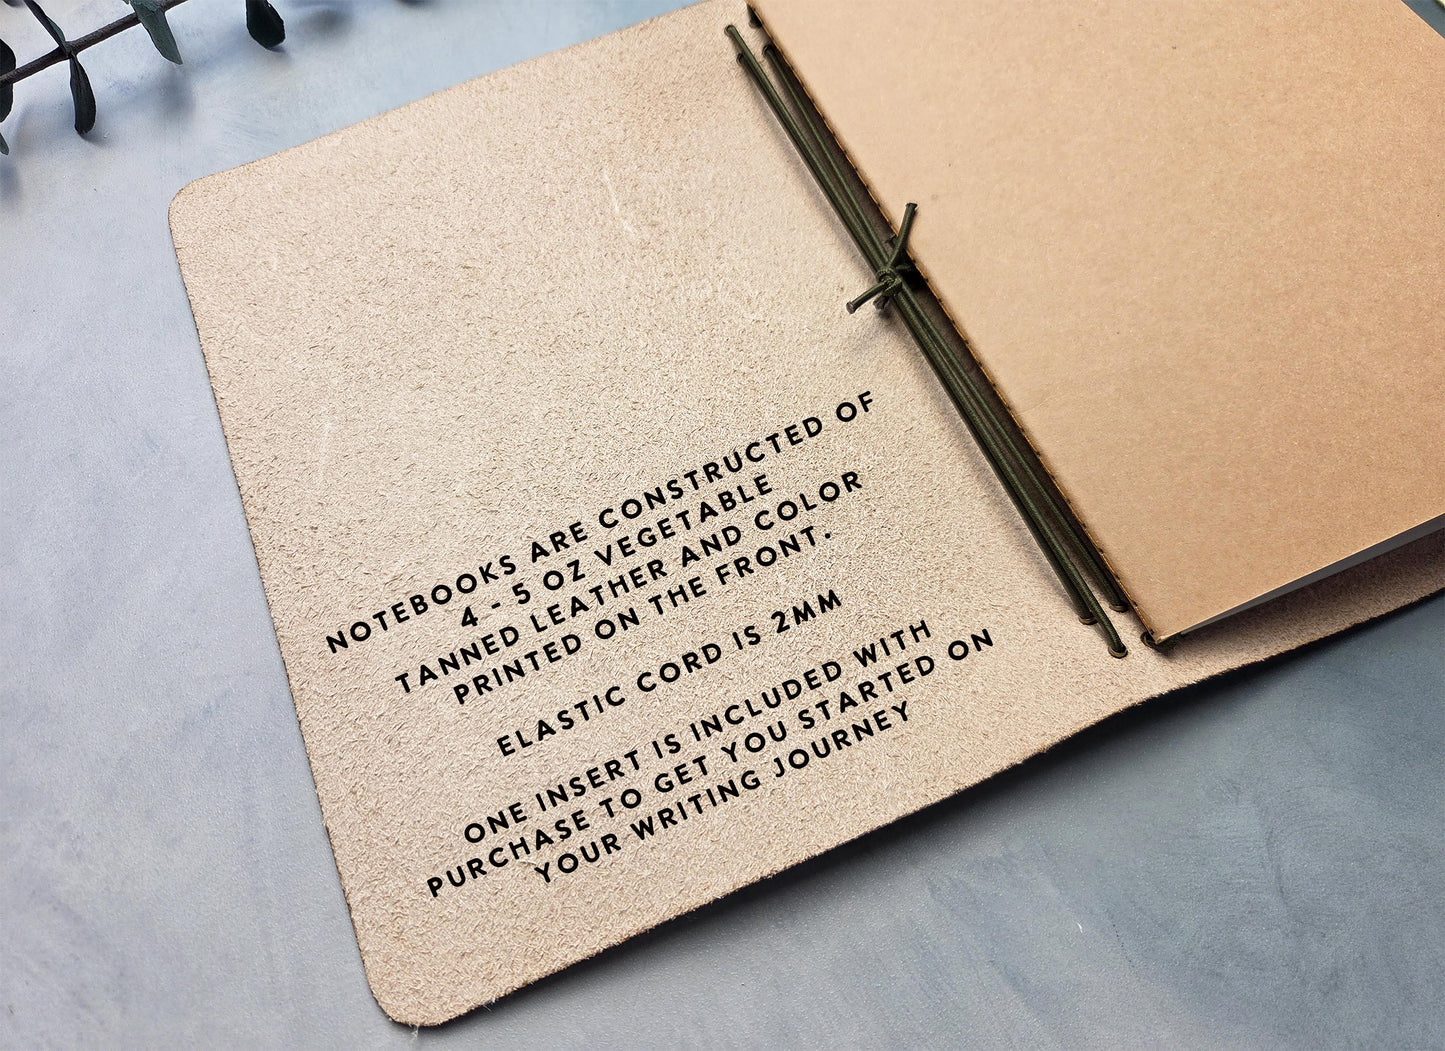 NOTEBOOKS ARE CONSTRUCTED OF
4 - 5 OZ VEGETABLE
TANNED LEATHER AND COLOR
PRINTED ON THE FRONT.
ELASTIC CORD IS 2MM
ONE INSERT IS INCLUDED WITH
PURCHASE TO GET YOU STARTED ON
YOUR WRITING JOURNEY